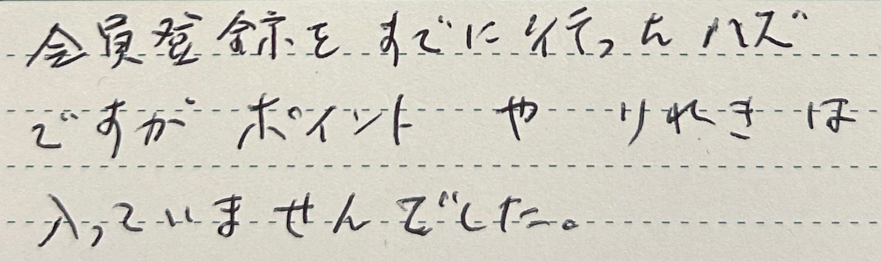 会員登録をすでに行ったハズ
ですが ポイント や りれきは
入っていませんでした。